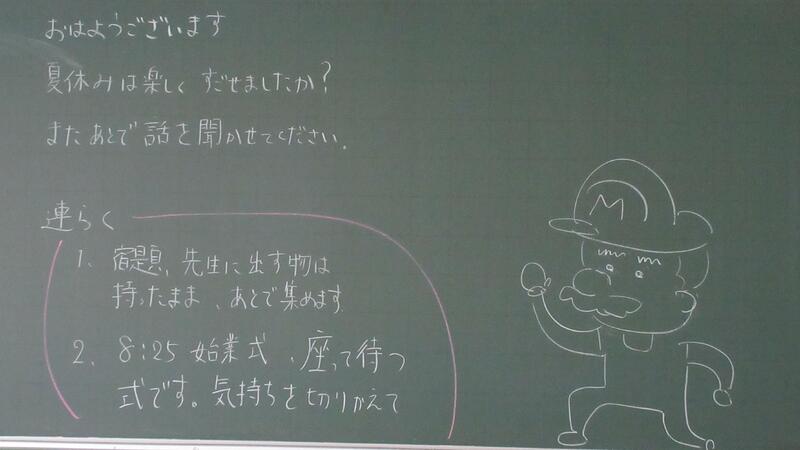 おはようございます
夏休みは楽しく すごせましたか?
また あとで 話を聞かせてください.
連らく
1. 宿題、先生に出す物は
持ったまま、あとで集めます.
2. 8:25 始業式 、座って待つ
式です。気持ちを切りかえて
M